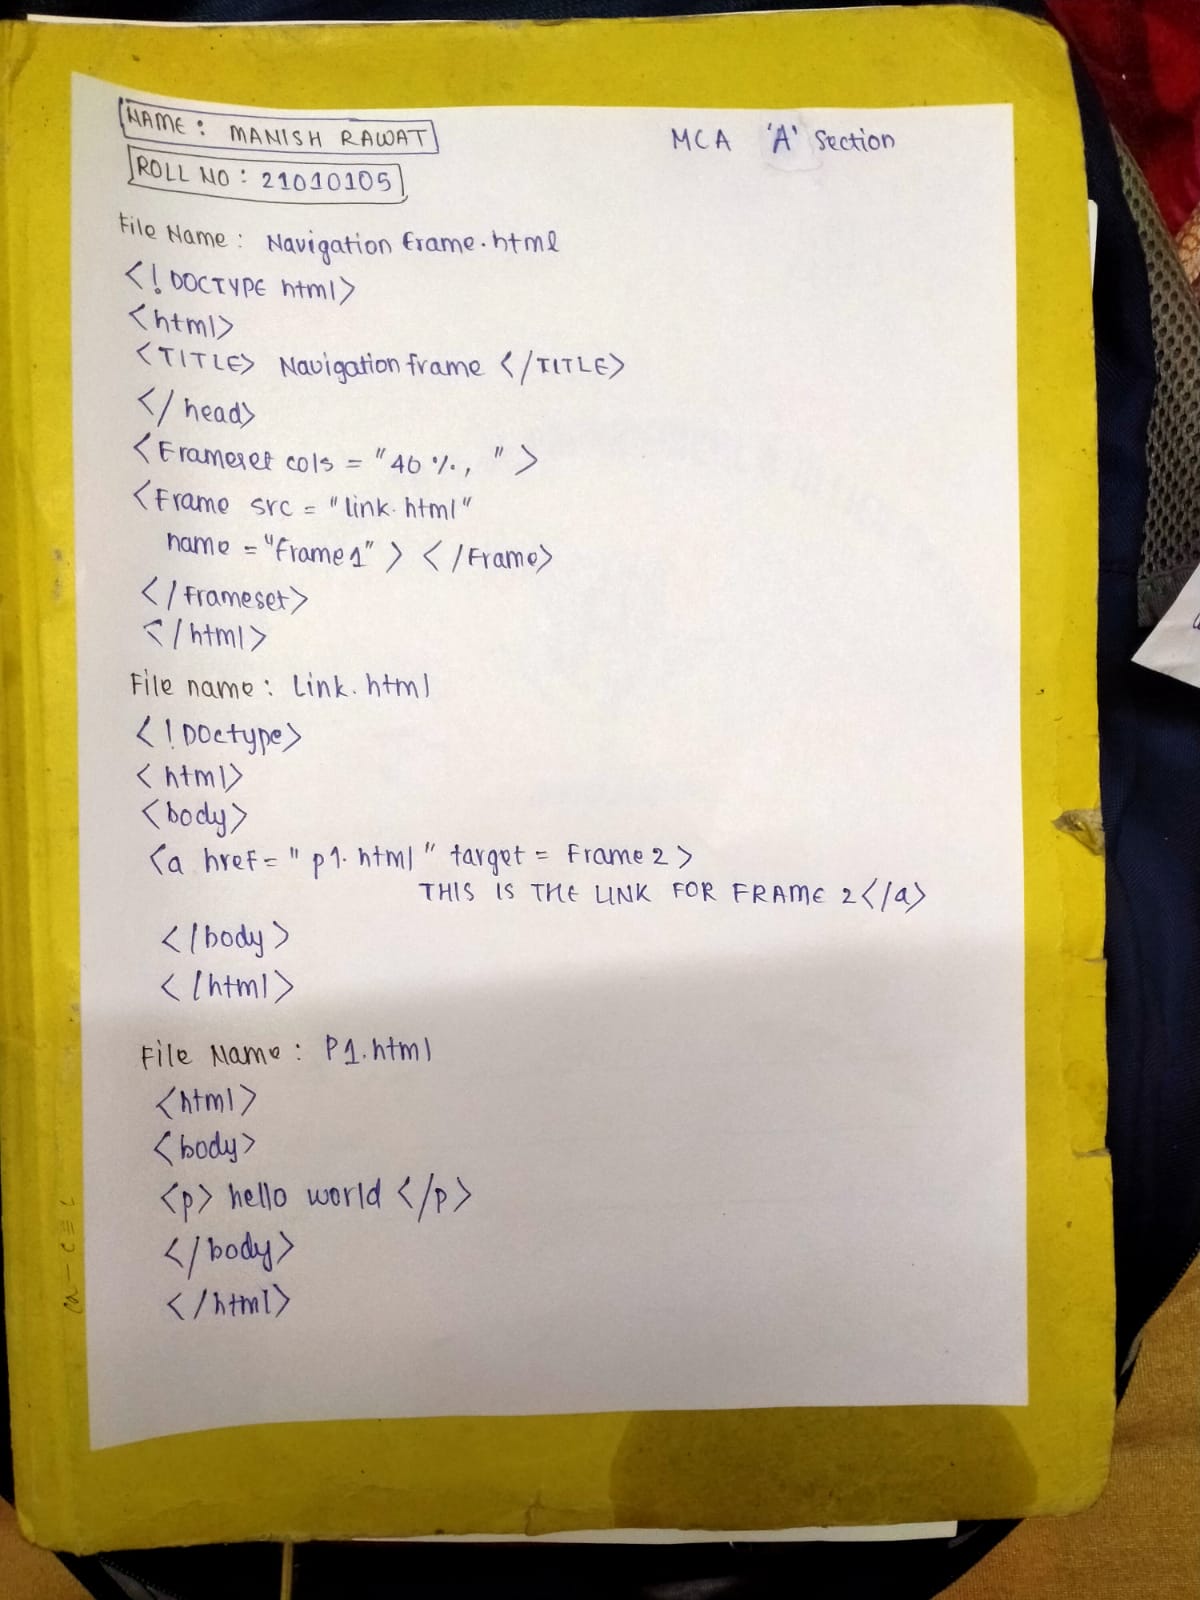 NAME: MANISH RAWAT
MCA 'A' Section
ROLL NO: 21010105
File Name: Navigation Frame.html
<!DOCTYPE html>
<html>
<TITLE> Navigation frame </TITLE>
</head>
<Frameset cols = "40%, ">
<Frame src = "link.html"
name = "Frame1" > </Frame>
</Frameset>
</html>
File name: Link.html
<!Doctype>
<html>
<body>
<a href= "p1.html" target = Frame 2>
THIS IS THE LINK FOR FRAME 2</a>
</body>
</html>
File Name: P1.html
<html>
<body>
<p> hello world </p>
</body>
</html>